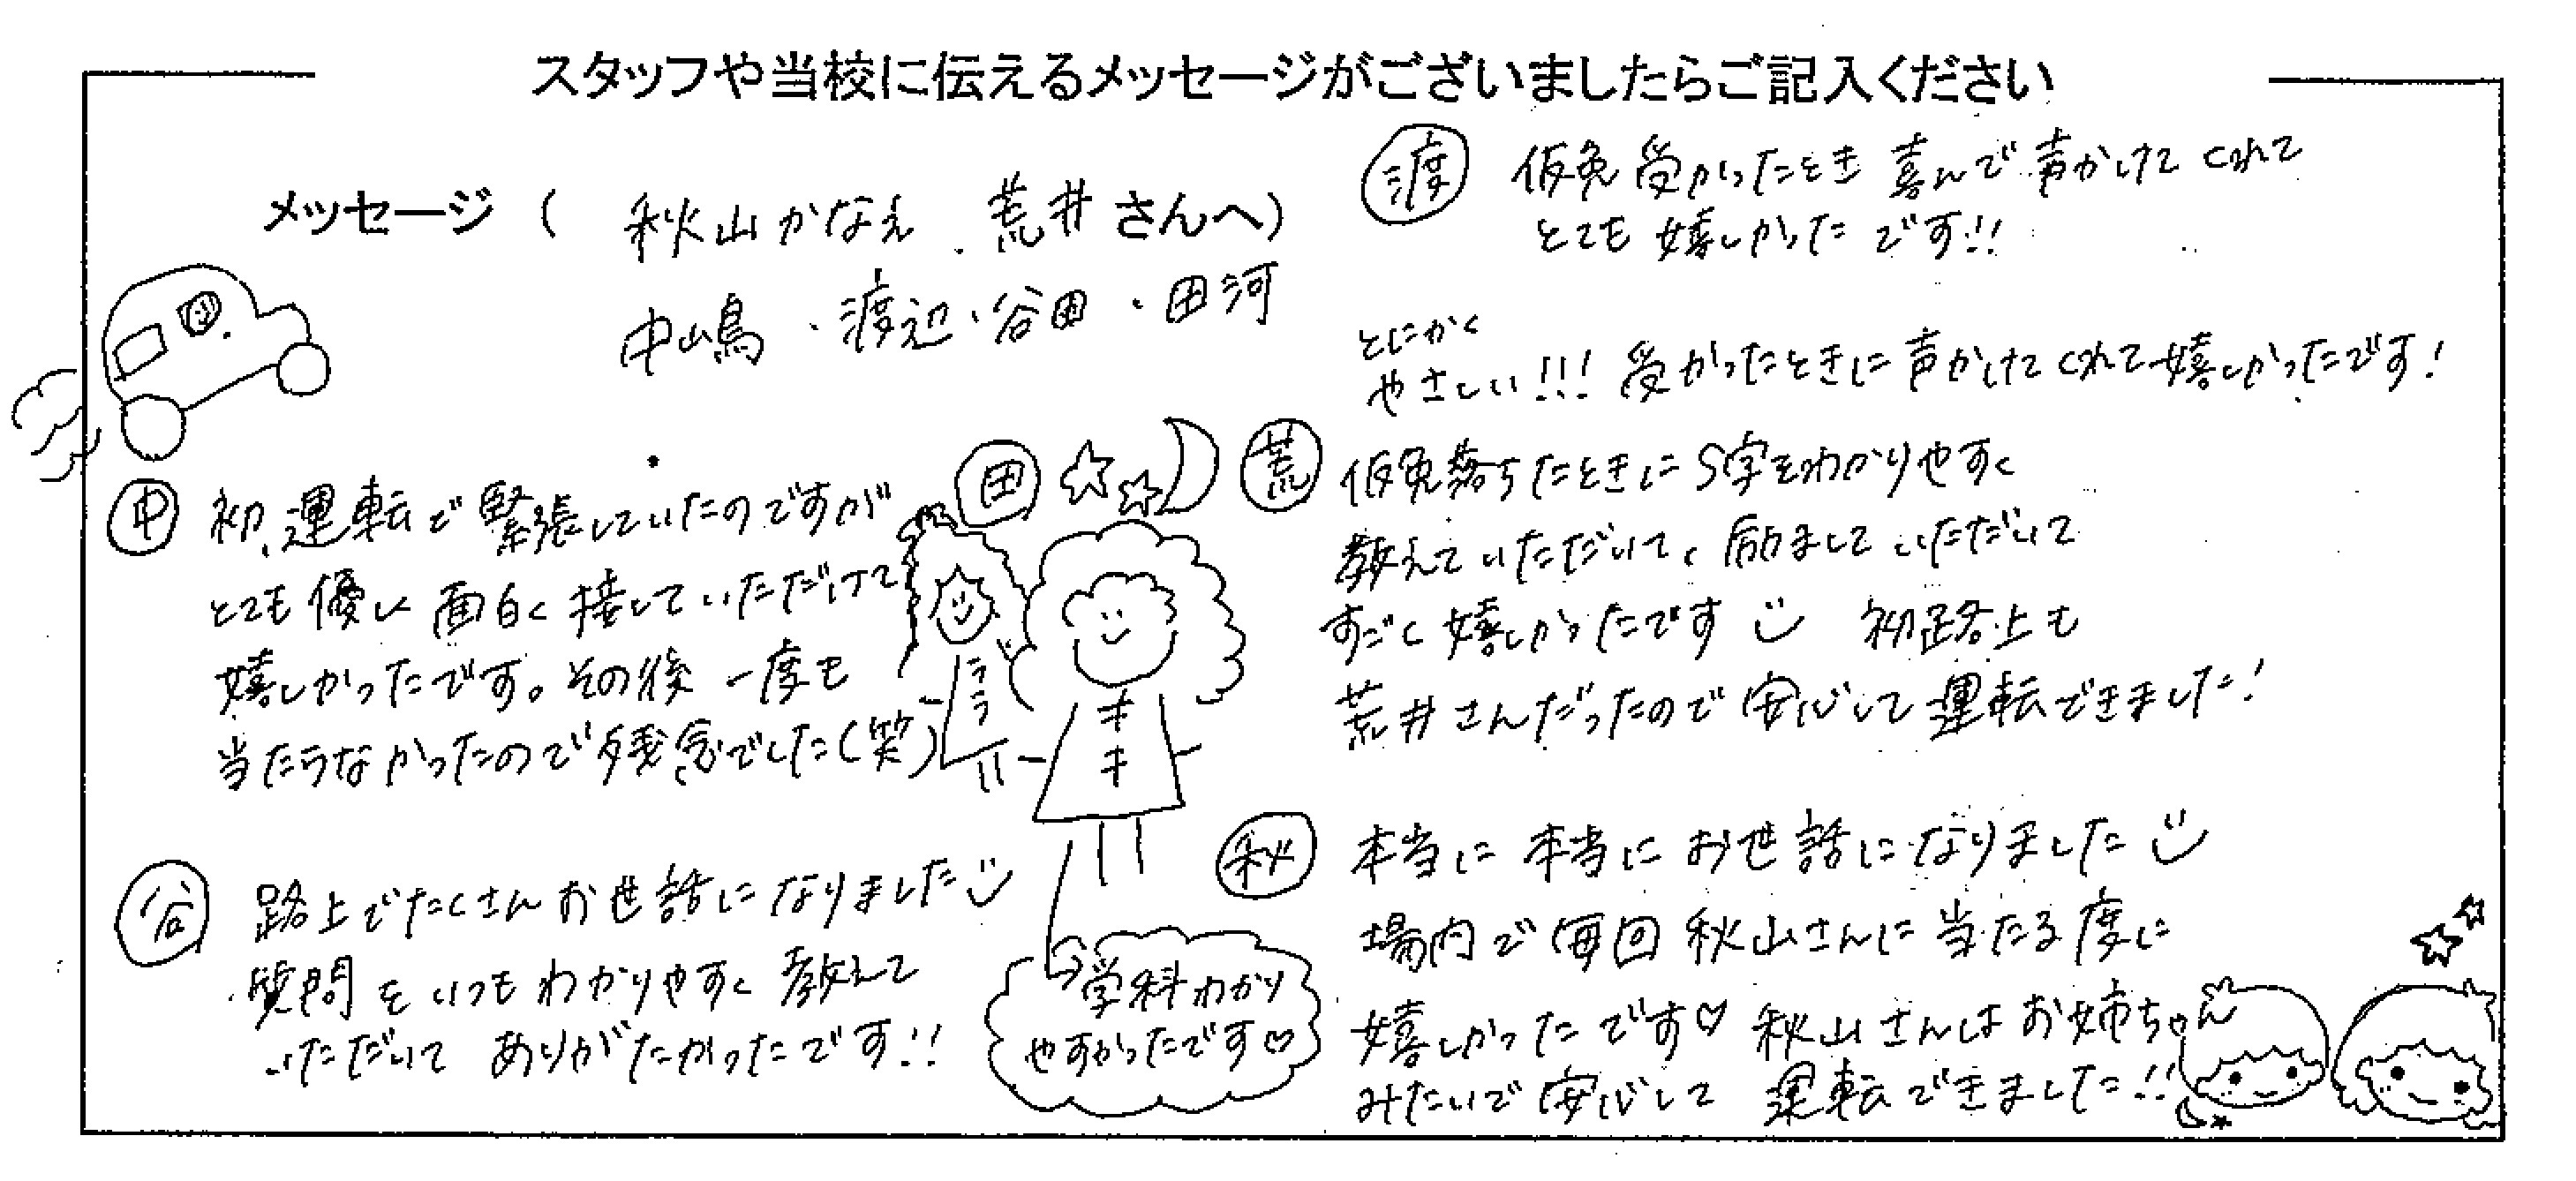 スタッフや当校に伝えるメッセージがございましたらご記入ください
メッセージ ( 秋山かなえ . 荒井 さんへ)
中嶋 ・ 渡辺 ・ 谷田 ・ 田河
渡 仮免受かったとき 喜んで声かけてくれて
とても嬉しかったです!!
とにかく
やさしい!!! 受かったときに声かけてくれて嬉しかったです!
中 初運転で緊張していたのですが
とても優しく面白く接していただけて
嬉しかったです。その後 一度も
当たらなかったので残念でした(笑)
谷 路上でたくさんお世話になりました
質問をいつもわかりやすく教えて
いただいて ありがたかったです!!
田
ララ
キキ
学科わかり
やすかったです♡
荒 仮免落ちたときにS字をわかりやすく
教えていただいて、励ましていただいて
すごく嬉しかったです 初路上も
荒井さんだったので安心して運転できました!
秋 本当に本当にお世話になりました
場内で毎回秋山さんに当たる度に
嬉しかったです♡ 秋山さんはお姉ちゃん
みたいで安心して 運転できました!!